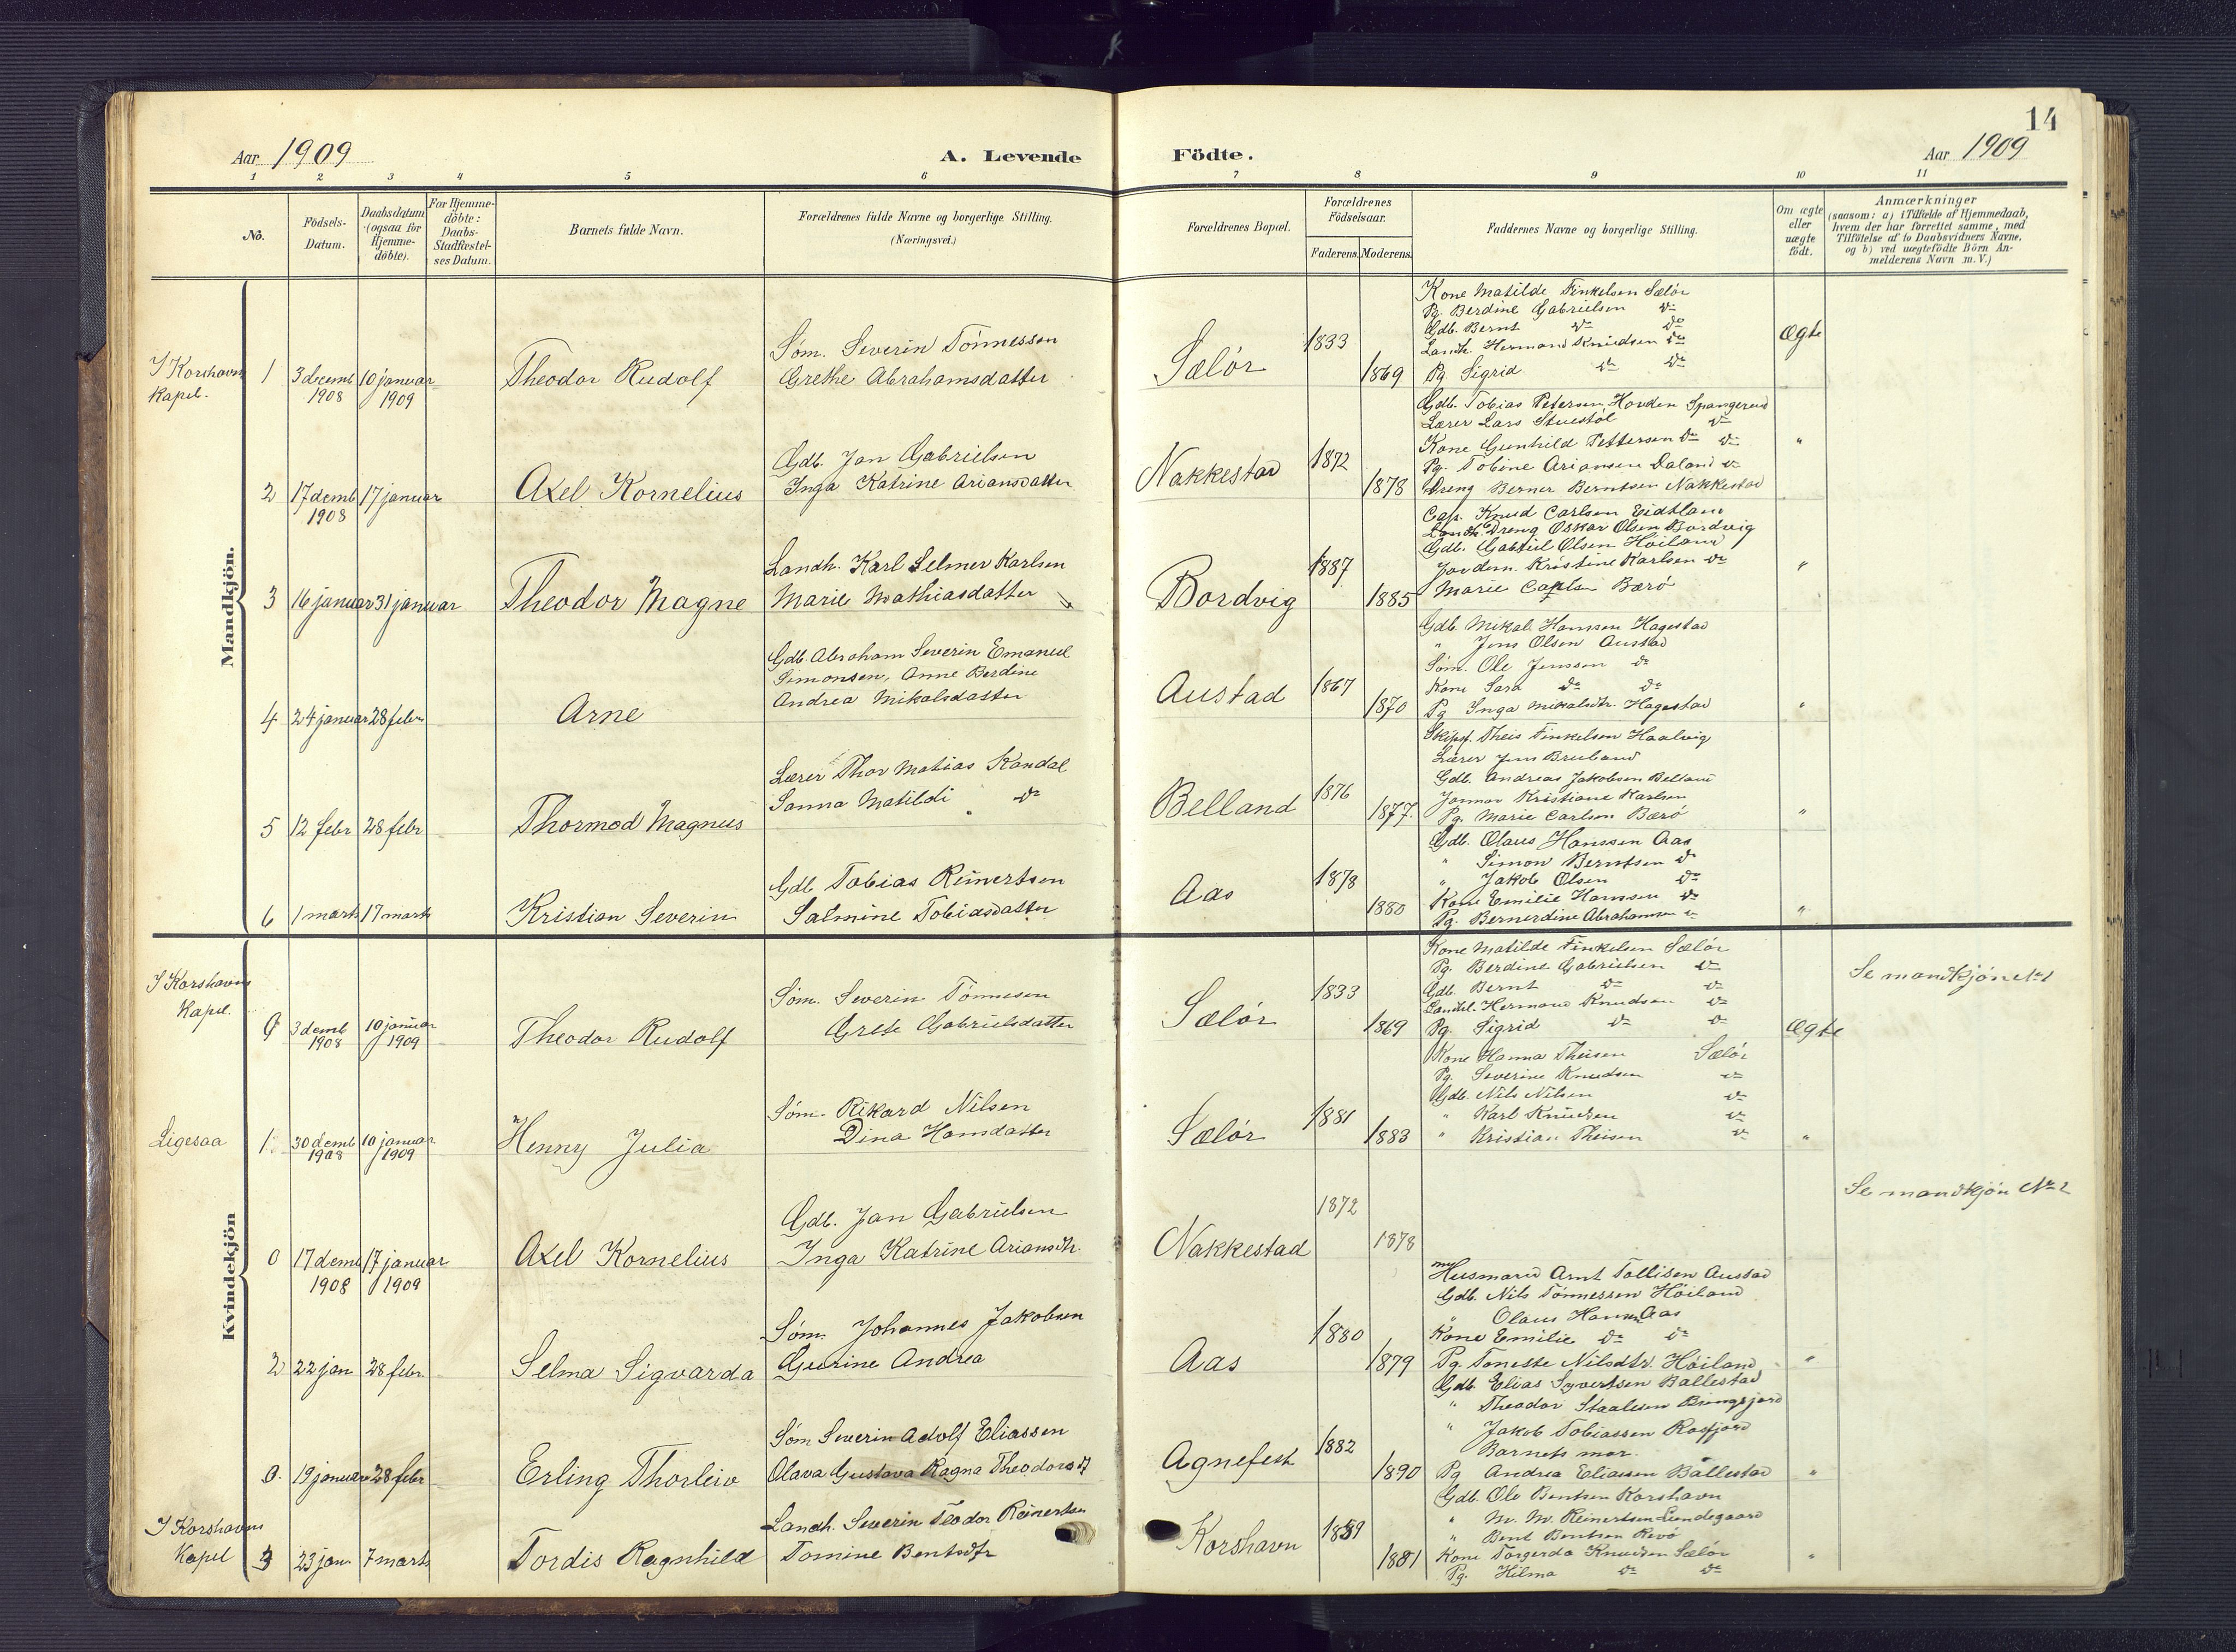 14
Aar 1909
A. Levende
Födte.
Aar 1909
1 2 3 4 5 6 7 8 9 10 11
No.
Födsels-
Datum.
Daabsdatum
(ogsaa for
Hjemme-
döbte).
For Hjemme-
döbte:
Daabs-
Stadfæstel-
ses Datum.
Barnets fulde Navn.
Forældrenes fulde Navne og borgerlige Stilling.
(Næringsvei.)
Forældrenes Bopæl.
Forældrenes
Födselsaar.
Faderens. Moderens.
Faddernes Navne og borgerlige Stilling.
Om ægte
eller
uægte
födt.
Anmærkninger
(saasom: a) i Tilfælde af Hjemmedaab,
hvem der har forrettet samme, med
Tilföielse af to Daabsvidners Navne,
og b) ved uægtefödte Börn An-
melderens Navn m. V.)
Mandkjön.
I Korshavn
Kapel.
1
3 decemb
1908
10 januar
1909
Theodor Rudolf
Søm. Severin Tönnesson
Grethe Abrahamsdatter
Sælör
1833
1869
Kone Matilde Finkelsen Sælör
Pg. Berdine Gabrielsen do
Gdb. Bernt do do
Landh. Hermand Knudsen do
Pg. Sigrid do do
Ægte
2
17 demb
1908
17 januar
Axel Kornelius
Gdb. Jan Gabrielsen
Inga Katrine Ariansdatter
Nakkestad
1872
1878
Gdb. Tobias Petersen Hovden Spangereid
Lærer Lars Stuestöl do
Kone Gunhild Pettersen do do
Pg. Tobine Ariansen Daland do
Dreng Berner Berntsen Nakkestad
"
3
16 januar
31 januar
Theodor Magne
Landh. Karl Selmer Karlsen
Marie Mathiasdatter
Bordvig
1887
1885
Cap. Knud Carlsen Eidtland
Landh. Dreng Oskar Olsen Bordvig
Gdb. Gabriel Olsen Höiland
Jordem. Kristine Karlsen do
Marie Carlsen Bærö
"
4
24 januar
28 febr
Arne
Gdb. Abraham Severin Emanuel
Simonsen, Anne Berdine
Andrea Mikalsdatter
Austad
1867
1870
Gdb. Mikal Hansen Hagestad
" Jens Olsen Austad
Søm. Ole Jensson do
Kone Sara do do
Pg Inga Mikalsdtr. Hagestad
"
5
12 febr
28 febr
Thormod Magnus
Lærer Thor Matias Kandal
Sanna Matildi " do
Belland
1876
1877.
Skipsf. Theis Finkelsen Haalvig
Lærer Jens Breiland
Gdb. Andreas Jakobsen Belland
Jonmor Kristiane Karlsen
Pg. Marie Carlsen Bærö
"
6
1 marts
17 marts
Kristian Severin
Gdb Tobias Reinertsen
Salmine Tobiasdatter
Aas
1878
1880
Gdb. Olaus Hanssen Aas
" Simon Berntsen do
" Jakob Olsen do
Kone Emilie Hansen do
Pg. Bernerdine Abrahamsen do
"
Kvindekjön
I Korshavns
Kapel.
0
3 demb
1908
10 januar
1909
Theodor Rudolf
Søm. Severin Tönnesen
Grete Gabrielsdatter
Sælör
1833
1869
Kone Matilde Finkelsen Sælör
Pg. Berdine Gabrielsen do
Gdb. Bernt do do
Landh. Hermand Knudsen do
Pg. Sigrid do do
Ægte
Se mandkjön No 1
Ligesaa
1
30 demb
1908
10 januar
1909
Henny Julia
Søm. Rikard Nilsen
Dina Hansdatter
Sælör
1881
1883
Kone Hanna Theisen Sælör
Pg. Severine Knudsen do
Gdb. Nils Nilsen do
" Karl Knudsen do
" Kristian Theisen do
"
0
17 demb
1908
17 januar
1909
Axel Kornelius
Gdb. Jan Gabrielsen
Inga Katrine Ariansdtr.
Nakkestad
1872
1878
Se mandkjön No 2
2
22 jan
28 febr.
Selma Sigvarda
Søm. Johannes Jakobsen
Gurine Andrea
Aas
1880
1879
Husmand Arnt Tollisen Austad
Gdb. Nils Tönnessen Höiland
" Olaus Hansen Aas
Kone Emilie do do
Pg. Toneste Nilsdtr. Höiland
"
0.
19 januar
28 febr
Erling Thorleiv
Søm Severin Adolf Eliassen
Olava Gustava Ragna Theodorsd
Agnefest
1882
1890
Gdb. Elias Syvertsen Ballestad
" Theodor Staalesen Bringsjord
" Jakob Tobiassen Rosfjord
Barnets mor.
Pg Andrea Eliassen Bållestad
"
I Korshavns
Kapel
3
23 jan.
7 marts
Tordis Ragnhild
Landh. Severin Teodor Reinertsen
Tomine Bentsdtr
Korshavn
1881
Gdb. Ole Bentsen Korshavn
" M. M. Reinertsen Lundegaard
" Bent Bentsen Revö
Kone Torgerda Knudsen Sælör
Pg. Hilma do do
"